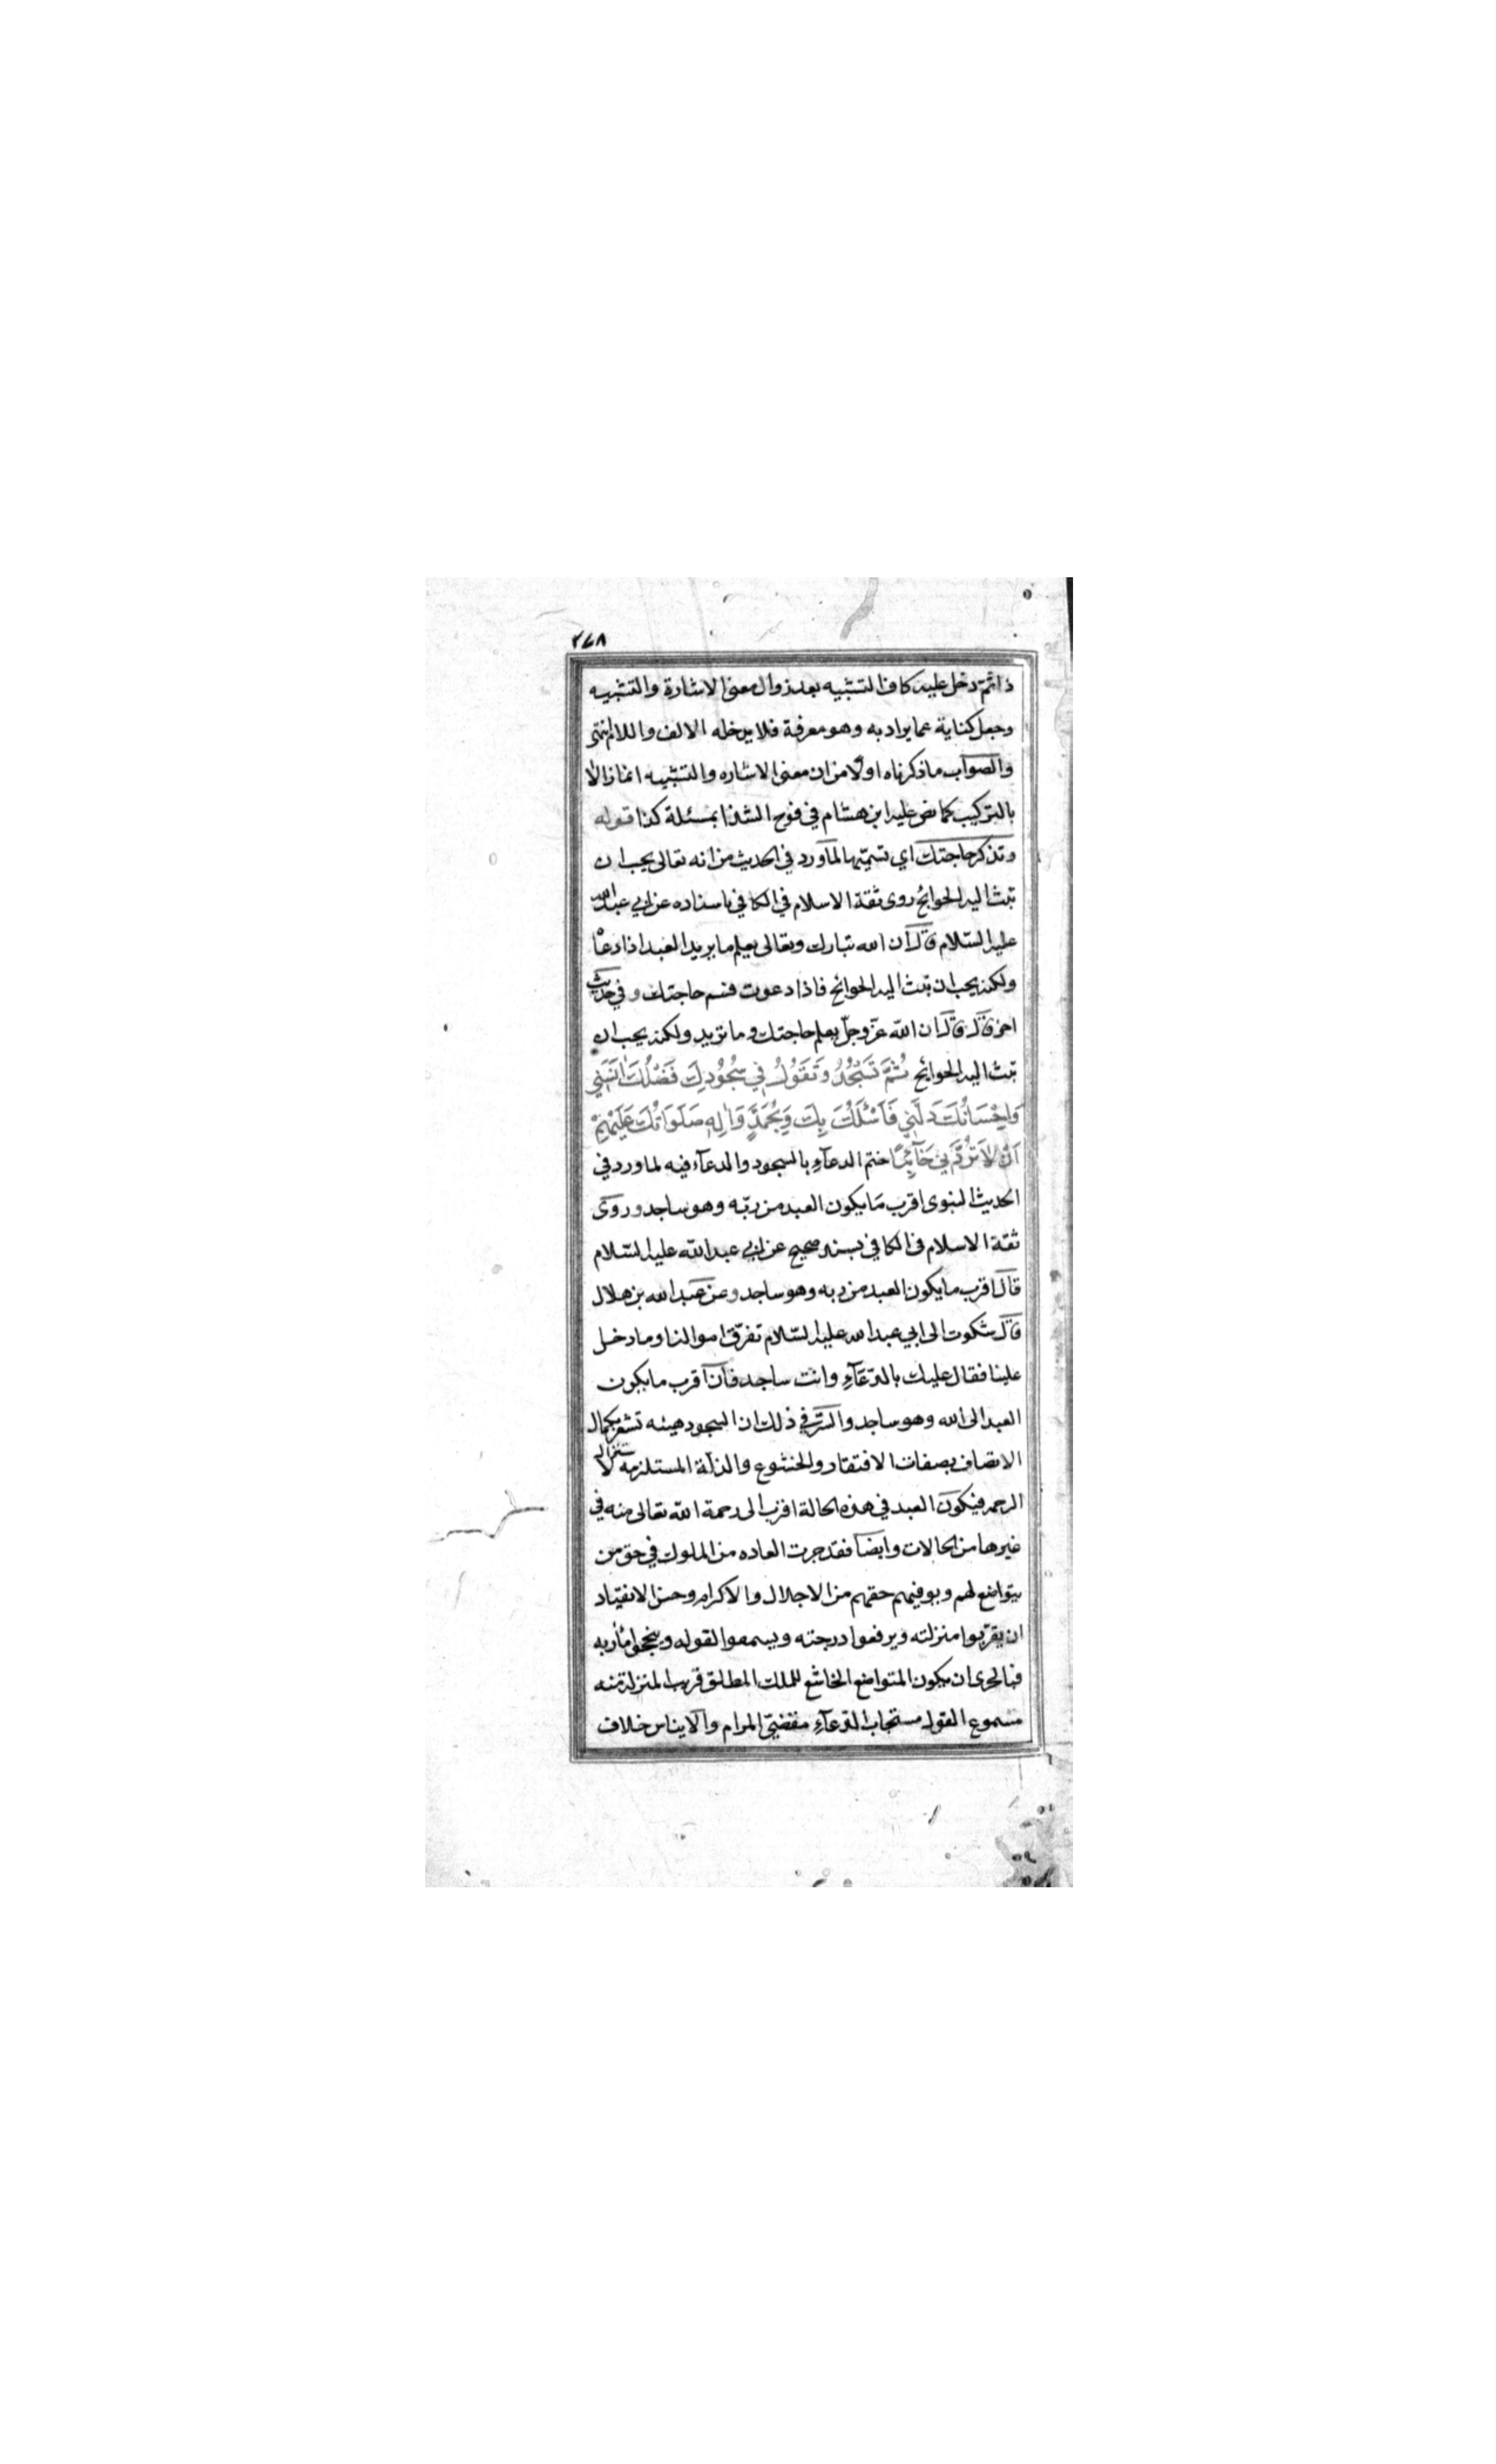 ٢٤٨
ذا ثم دخل عليه كاف التشبيه بعد زوال معنى الاشارة والتشبيه
وجعل كناية عما يراد به وهو معرفة فلا يدخله الالف واللام انتهى
والصواب ما ذكرناه اولا من ان معنى الاشاره والتشبيه انما زالا
بالتركيب كما نص عليه ابن هشام في فوح الشذا بمسئلة كذا قوله
وتذكر حاجتك اي تسميتها لما ورد في الحديث من انه تعالى يحب ان
تبث اليه الحوائج روى ثقة الاسلام في الكافي باسناده عن ابي عبد الله
عليه السّلام قال ان الله تبارك وتعالى يعلم ما يريد العبد اذا دعا
ولكنه يحب ان تبث اليه الحوائج فاذا دعوت فسم حاجتك وفي حديث
اخر قال قال ان الله عزّ وجلّ يعلم حاجتك وما تريد ولكنه يحب ان
تبث اليه الحوائج ثُمَّ تَسْجُدُ وَتَقُولُ فِي سُجُودِكَ فَضْلُكَ انَسَنِي
وَاِحْسَانُكَ دَلَّنِي فَاَسْئَلُكَ بِكَ وَبِمُحَمَّدٍ وَالِهِ صَلَوَاتُكَ عَلَيْهِمْ
اَنْ لاَ تَرُدَّنِي خَائِبًا ختم الدعآء بالسجود والدعآء فيه لما ورد في
الحديث النبوى اقرب مَا يكون العبد من ربّه وهو ساجد وروى
ثقة الاسلام فى الكافي بسند صحيح عن ابي عبد الله عليه السّلام
قال اقرب ما يكون العبد من ربه وهو ساجد وعن عبد الله بن هلال
قال شكوت الى ابي عبد الله عليه السّلام تفرّق اموالنا وما دخل
علينا فقال عليك بالدّعآءِ وانت ساجد فان اقرب ما يكون
العبد الى الله وهو ساجد والسّرّ في ذلك ان السجود هيئه تشعر بكمال
الاتصاف بصفات الافتقار والخشوع والذلّة المستلزمه لاستنزال
الرحمه فيكون العبد في هذه الحالة اقرب الى رحمة الله تعالى منه في
غيرها من الحالات وايضا فقد جرت العاده من الملوك في حق من
يتواضع لهم ويوفيهم حقهم من الاجلال والاكرام وحسن الانقياد
ان يقرّبوا منزلته ويرفعوا درجته ويسمعوا لقوله وينجحوا مأربه
فبالحرى ان يكون المتواضع الخاشع للملك المطلق قريب المنزلة منه
مسموع القول مستجاب الدّعآءِ مقضيّ المرام والايناس خلاف